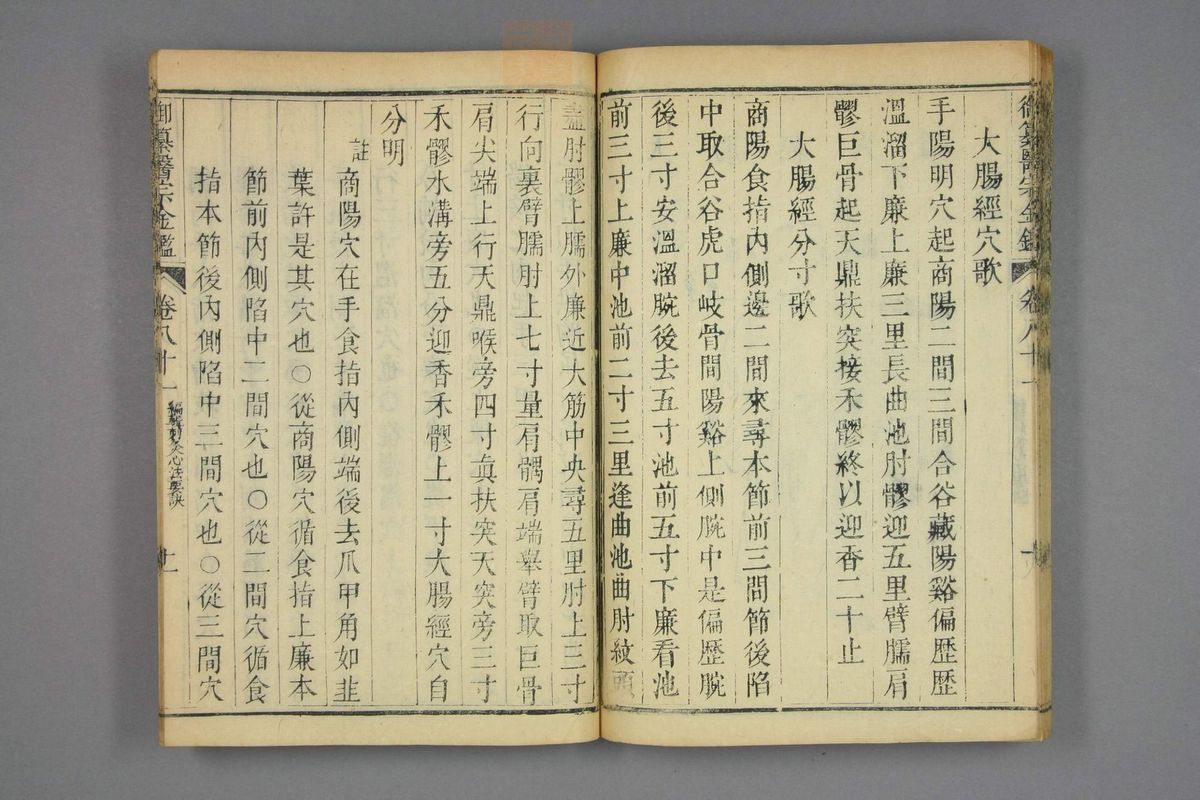 大腸經穴歌
手陽明穴起商陽二間三間合谷藏陽谿偏歷歷
溫溜下廉上廉三里長曲池肘髎迎五里臂臑肩
髎巨骨起天鼎扶突接禾髎終以迎香二十止
大腸經分寸歌
商陽食指內側邊二間來尋本節前三間節後陷
中取合谷虎口岐骨間陽谿上側腕中是偏歷腕
後三寸安溫溜腕後去五寸池前五寸下廉看池
前三寸上廉中池前二寸三里逢曲池曲肘紋頭
盡肘髎上臑外廉近大筋中央尋五里肘上三寸
行向裏臂臑肘上七寸量肩髃肩端舉臂取巨骨
肩尖端上行天鼎喉旁四寸眞扶突天突旁三寸
禾髎水溝旁五分迎香禾髎上一寸大腸經穴自
分明
註
商陽穴在手食指內側端後去爪甲角如韭
葉許是其穴也○從商陽穴循食指上廉本
節前內側陷中二間穴也○從二間穴循食
指本節後內側陷中三間穴也○從三間穴
御纂醫宗金鑑 卷八十一 編輯刺灸心法要訣